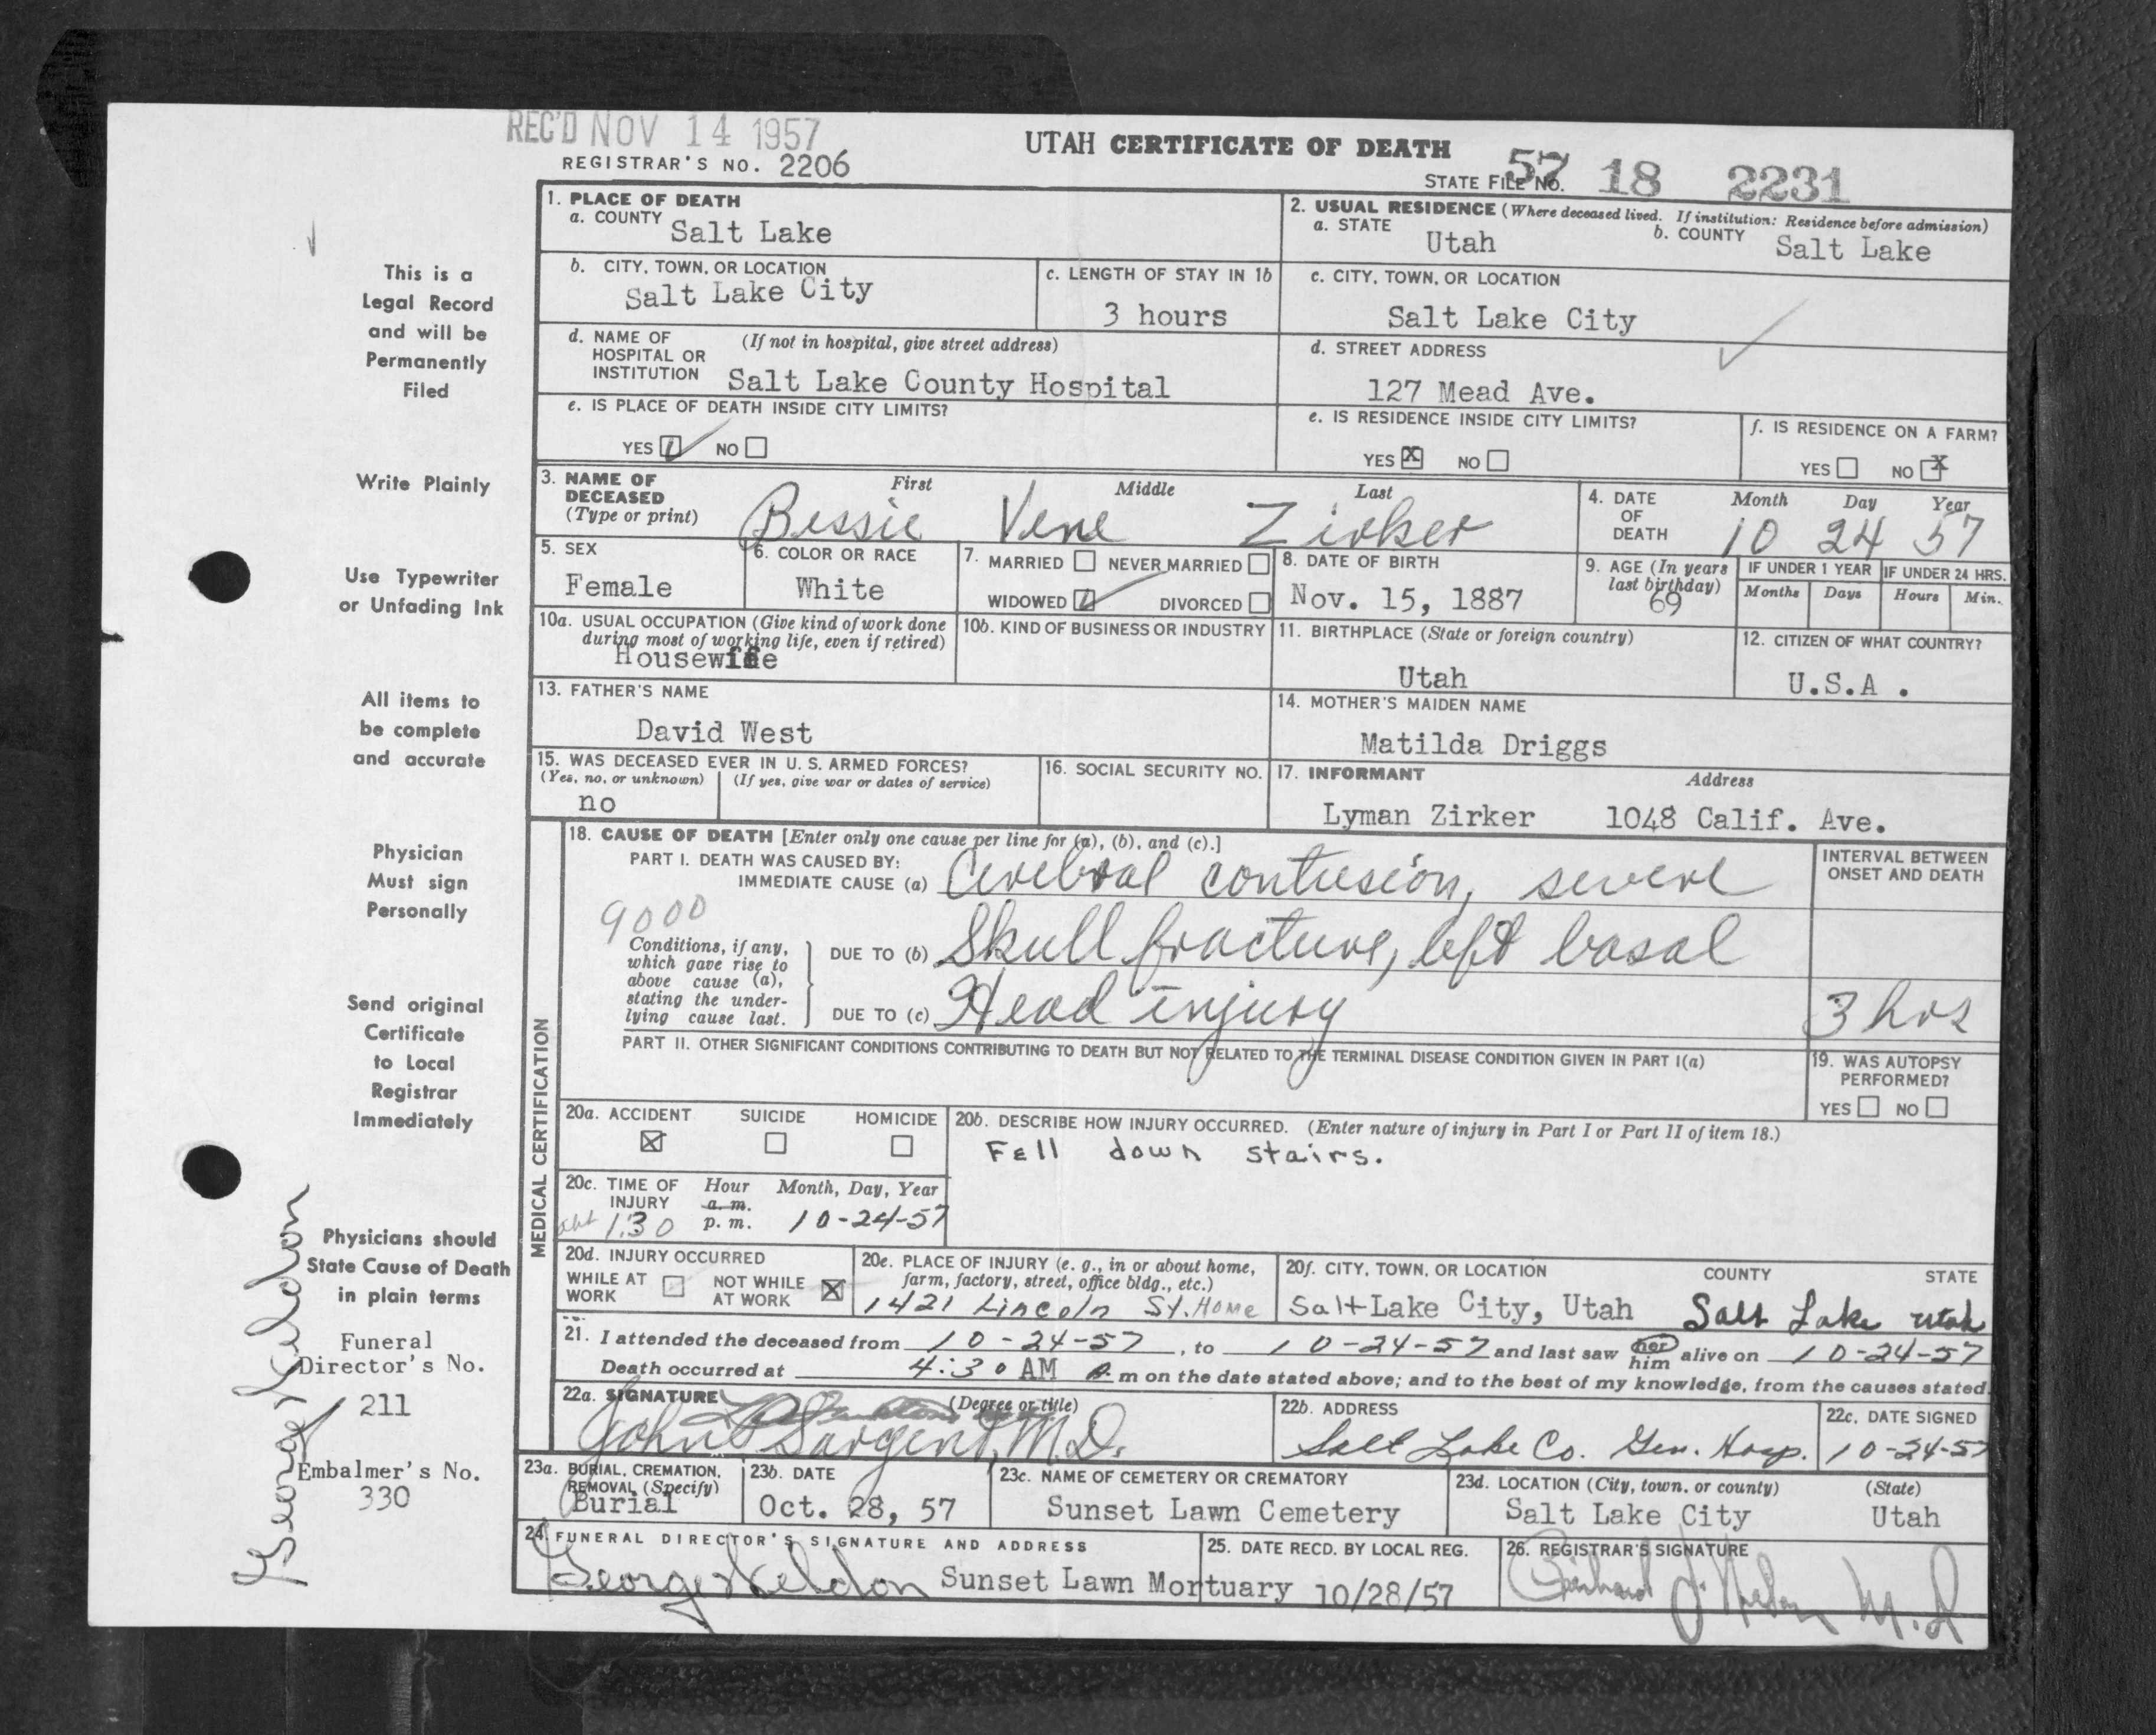 REC'D NOV 14 1957
REGISTRAR'S NO. 2206
UTAH CERTIFICATE OF DEATH
STATE FILE NO. 57 18 2231
1. PLACE OF DEATH
a. COUNTY Salt Lake
2. USUAL RESIDENCE (Where deceased lived. If institution: Residence before admission)
a. STATE Utah b. COUNTY Salt Lake
b. CITY, TOWN, OR LOCATION
Salt Lake City
c. LENGTH OF STAY IN 1b
3 hours
c. CITY, TOWN, OR LOCATION
Salt Lake City
d. NAME OF HOSPITAL OR INSTITUTION (If not in hospital, give street address)
Salt Lake County Hospital
d. STREET ADDRESS
127 Mead Ave.
e. IS PLACE OF DEATH INSIDE CITY LIMITS?
YES NO
e. IS RESIDENCE INSIDE CITY LIMITS?
YES X NO
f. IS RESIDENCE ON A FARM?
YES NO X
3. NAME OF DECEASED (Type or print)
First Middle Last
Bessie Vene Zirker
4. DATE OF DEATH
Month Day Year
10 24 57
5. SEX
Female
6. COLOR OR RACE
White
7. MARRIED NEVER MARRIED
WIDOWED DIVORCED
8. DATE OF BIRTH
Nov. 15, 1887
9. AGE (In years last birthday)
69
IF UNDER 1 YEAR
Months Days
IF UNDER 24 HRS.
Hours Min.
10a. USUAL OCCUPATION (Give kind of work done during most of working life, even if retired)
Housewife
10b. KIND OF BUSINESS OR INDUSTRY
11. BIRTHPLACE (State or foreign country)
Utah
12. CITIZEN OF WHAT COUNTRY?
U.S.A .
13. FATHER'S NAME
David West
14. MOTHER'S MAIDEN NAME
Matilda Driggs
15. WAS DECEASED EVER IN U. S. ARMED FORCES?
(Yes, no, or unknown) (If yes, give war or dates of service)
no
16. SOCIAL SECURITY NO.
17. INFORMANT Address
Lyman Zirker 1048 Calif. Ave.
MEDICAL CERTIFICATION
18. CAUSE OF DEATH [Enter only one cause per line for (a), (b), and (c).]
PART I. DEATH WAS CAUSED BY:
IMMEDIATE CAUSE (a) Cerebral contusion, severe
INTERVAL BETWEEN ONSET AND DEATH
9000
Conditions, if any, which gave rise to above cause (a), stating the underlying cause last.
DUE TO (b) Skull fracture, left basal
DUE TO (c) Head injury
3 hrs
PART II. OTHER SIGNIFICANT CONDITIONS CONTRIBUTING TO DEATH BUT NOT RELATED TO THE TERMINAL DISEASE CONDITION GIVEN IN PART I(a)
19. WAS AUTOPSY PERFORMED?
YES NO
20a. ACCIDENT SUICIDE HOMICIDE
X
20b. DESCRIBE HOW INJURY OCCURRED. (Enter nature of injury in Part I or Part II of item 18.)
Fell down stairs.
20c. TIME OF INJURY Hour Month, Day, Year
a. m.
p. m.
abt 1:30 10-24-57
20d. INJURY OCCURRED
WHILE AT WORK NOT WHILE AT WORK X
20e. PLACE OF INJURY (e. g., in or about home, farm, factory, street, office bldg., etc.)
1421 Lincoln St. Home
20f. CITY, TOWN, OR LOCATION COUNTY STATE
Salt Lake City, Utah Salt Lake Utah
21. I attended the deceased from 10-24-57, to 10-24-57 and last saw her him alive on 10-24-57
Death occurred at 4:30 AM m on the date stated above; and to the best of my knowledge, from the causes stated.
22a. SIGNATURE (Degree or title)
John Sargent, M.D.
22b. ADDRESS
Salt Lake Co. Gen. Hosp.
22c. DATE SIGNED
10-24-57
23a. BURIAL, CREMATION, REMOVAL (Specify)
Burial
23b. DATE
Oct. 28, 57
23c. NAME OF CEMETERY OR CREMATORY
Sunset Lawn Cemetery
23d. LOCATION (City, town, or county) (State)
Salt Lake City Utah
24. FUNERAL DIRECTOR'S SIGNATURE AND ADDRESS
George Keldon Sunset Lawn Mortuary
25. DATE RECD. BY LOCAL REG.
10/28/57
26. REGISTRAR'S SIGNATURE
M.D
This is a
Legal Record
and will be
Permanently
Filed
Write Plainly
Use Typewriter
or Unfading Ink
All items to
be complete
and accurate
Physician
Must sign
Personally
Send original
Certificate
to Local
Registrar
Immediately
Physicians should
State Cause of Death
in plain terms
Funeral
Director's No.
211
Embalmer's No.
330
George Keldon